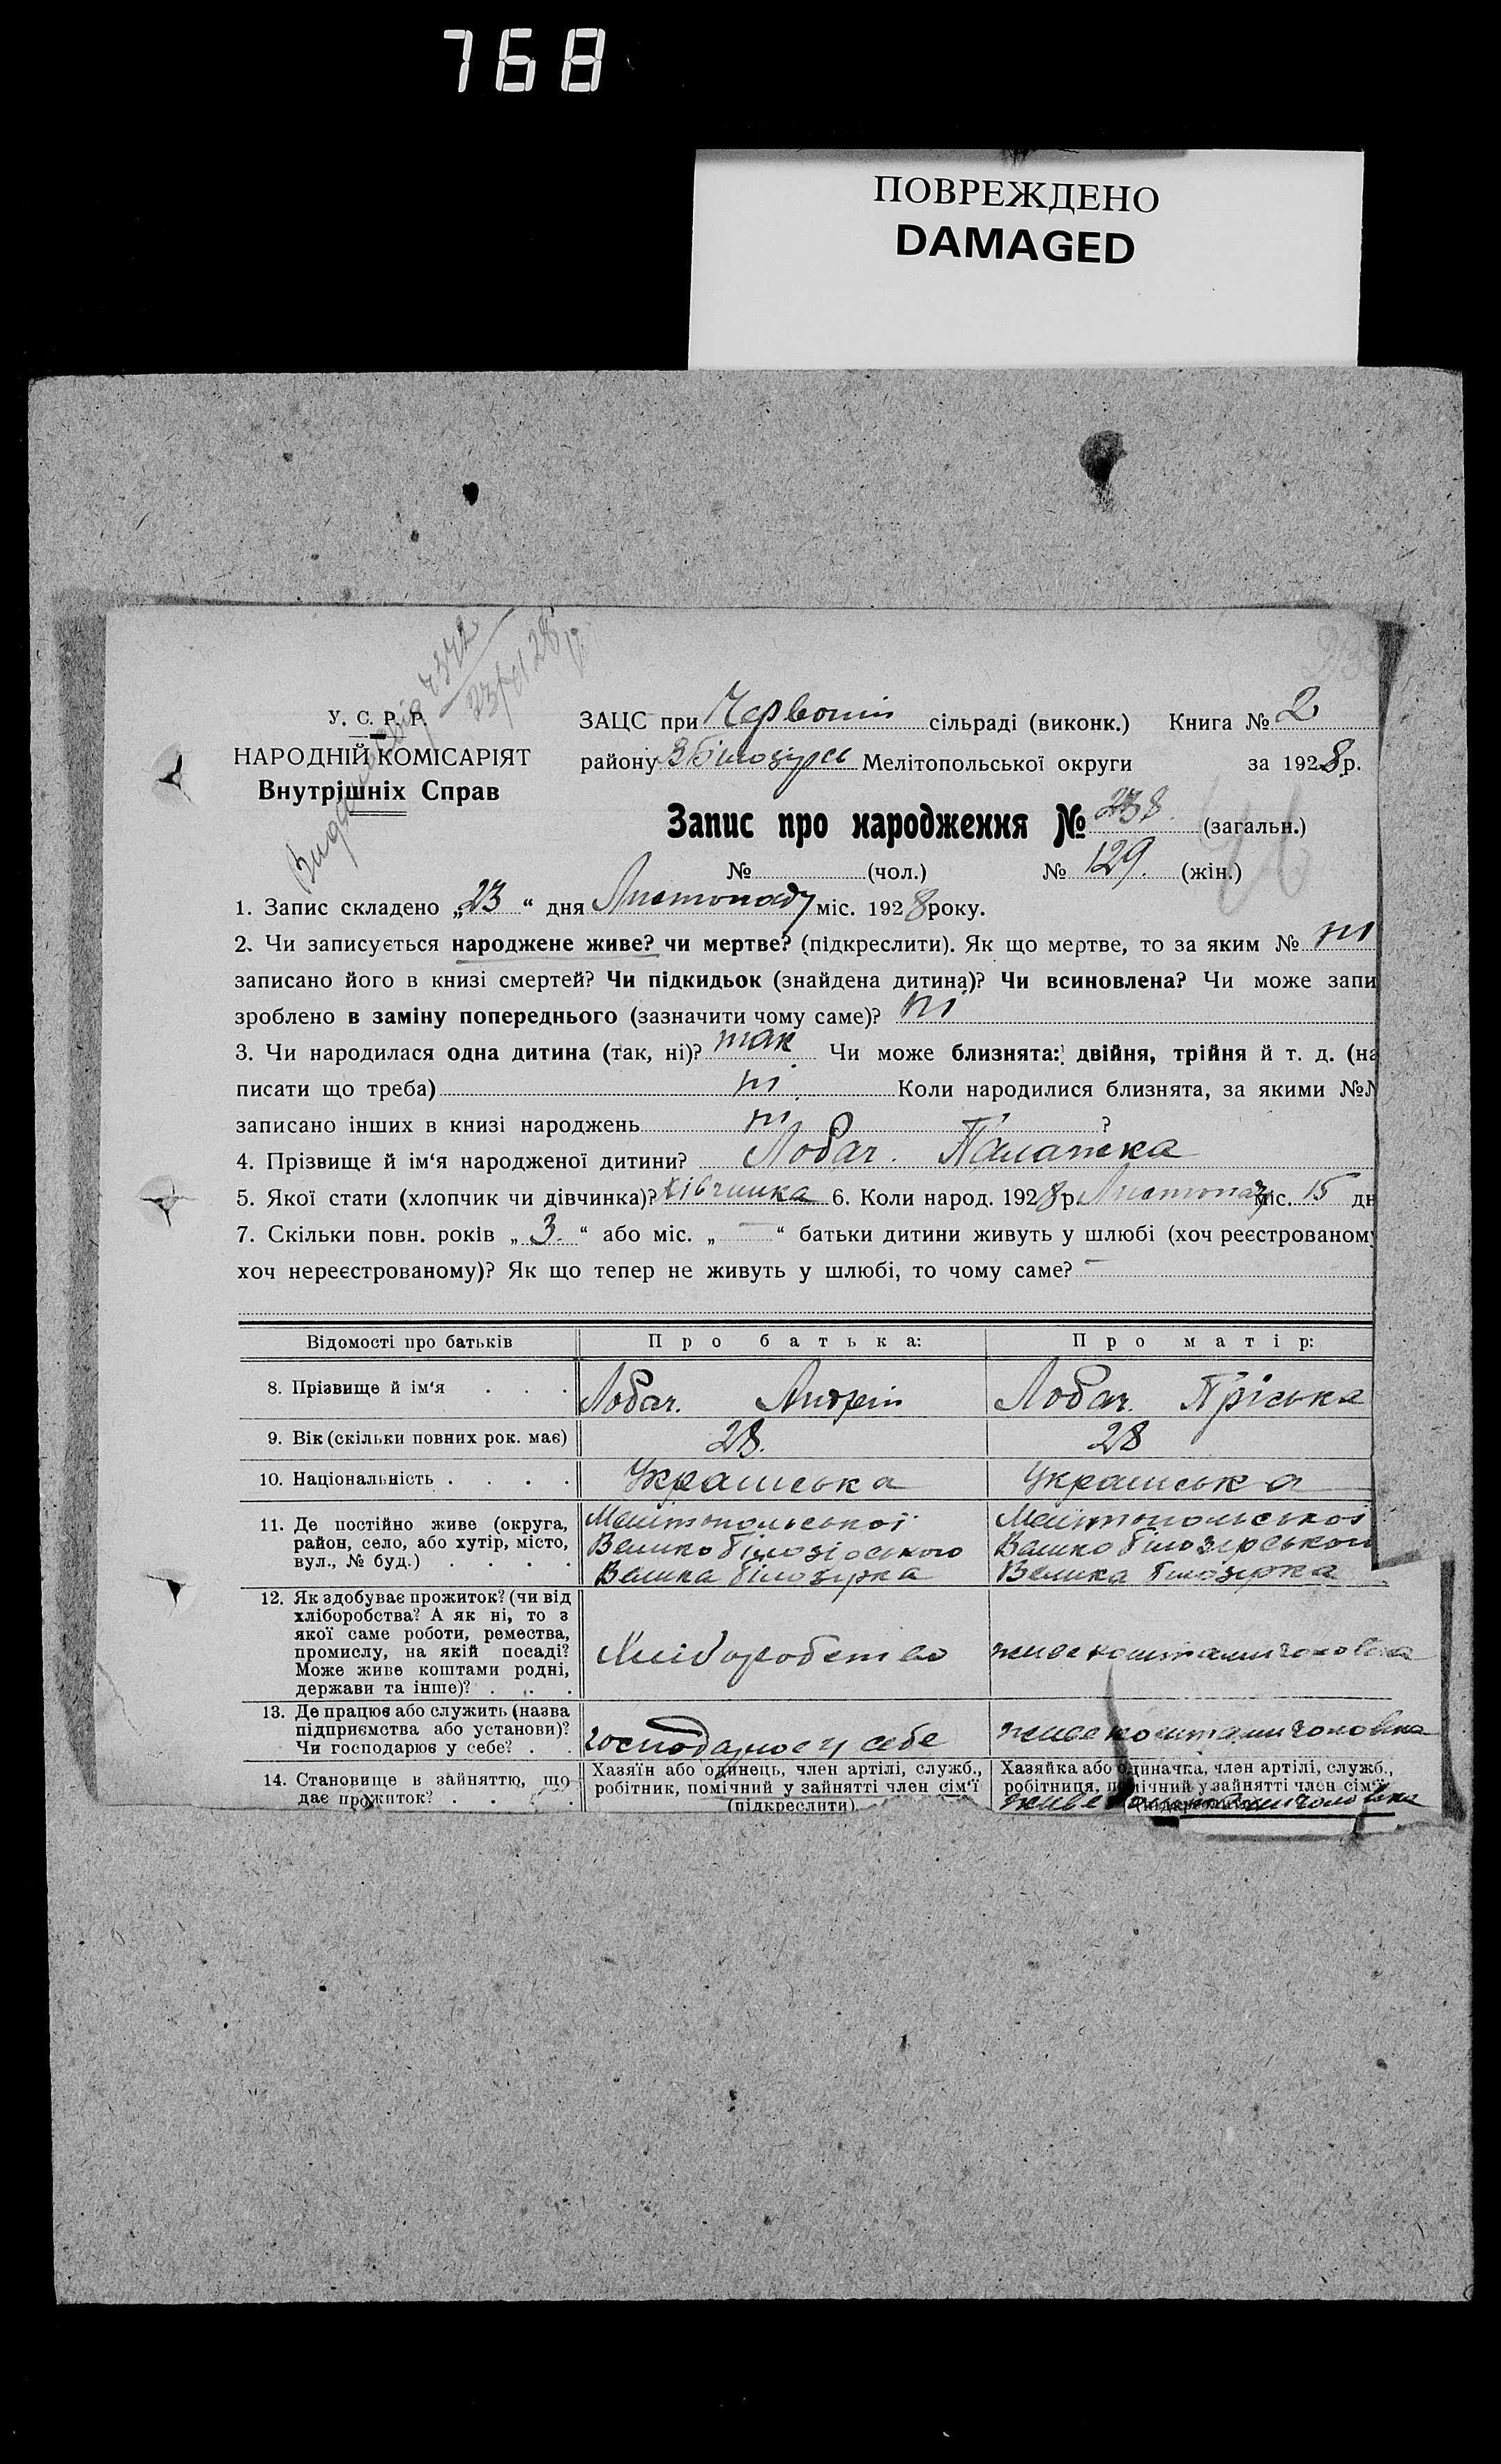 768
ПОВРЕЖДЕНО
DAMAGED
У. С. Р. Р.
НАРОДНІЙ КОМІСАРІЯТ
Внутрішніх Справ
ЗАЦС при Червоній сільраді (виконк.) Книга № 2
району ВБілозірсь Мелітопольської округи за 1928 р.
Запис про народження № 238 (загальн.)
№ (чол.) № 129. (жін.)
1. Запис складено „23“ дня Листопаду міс. 1928 року.
2. Чи записується народжене живе? чи мертве? (підкреслити). Як що мертве, то за яким № ні
записано його в книзі смертей? Чи підкидьок (знайдена дитина)? Чи всиновлена? Чи може запи
зроблено в заміну попереднього (зазначити чому саме)? ні
3. Чи народилася одна дитина (так, ні)? так Чи може близнята: двійня, трійня й т. д. (на
писати що треба) ні Коли народилися близнята, за якими №
записано інших в книзі народжень ні ?
4. Прізвище й ім‘я народженої дитини? Лобач.
5. Якої стати (хлопчик чи дівчинка)? дівчинка 6. Коли народ. 1928 р. Листопад міс. 15 дн
7. Скільки повн. років „3.“ або міс. „—“ батьки дитини живуть у шлюбі (хоч реєстрованому
хоч нереєстрованому)? Як що тепер не живуть у шлюбі, то чому саме? —
Відомості про батьків Про батька: Про матір:
8. Прізвище й ім‘я . . . Лобач. Андрій Лобач. Пріська
9. Вік (скільки повних рок. має) 28. 28
10. Національність . . . . Українська Українська
11. Де постійно живе (округа,
район, село, або хутір, місто,
вул., № буд.) . . . .
Мелітопольської
Велико білозірського
Велика білозірка
Мелітопольської
Велико білозірського
Велика білозірка
12. Як здобуває прожиток? (чи від
хліборобства? А як ні, то з
якої саме роботи, ремества,
промислу, на якій посаді?
Може живе коштами родні,
держави та інше)? . . .
Хліборобство
живе коштами чоловіка
13. Де працює або служить (назва
підприємства або установи)?
Чи господарює у себе? . .
господарює у себе
живе коштами чоловіка
14. Становище в зайняттю, що
дає прожиток? . . . .
Хазяїн або одинець, член артілі, служб.,
робітник, помічний у зайнятті член сім‘ї
(підкреслити).
Хазяйка або одиначка, член артілі, служб.,
робітниця, помічний у зайнятті член сім‘ї
живе коштами чоловіка